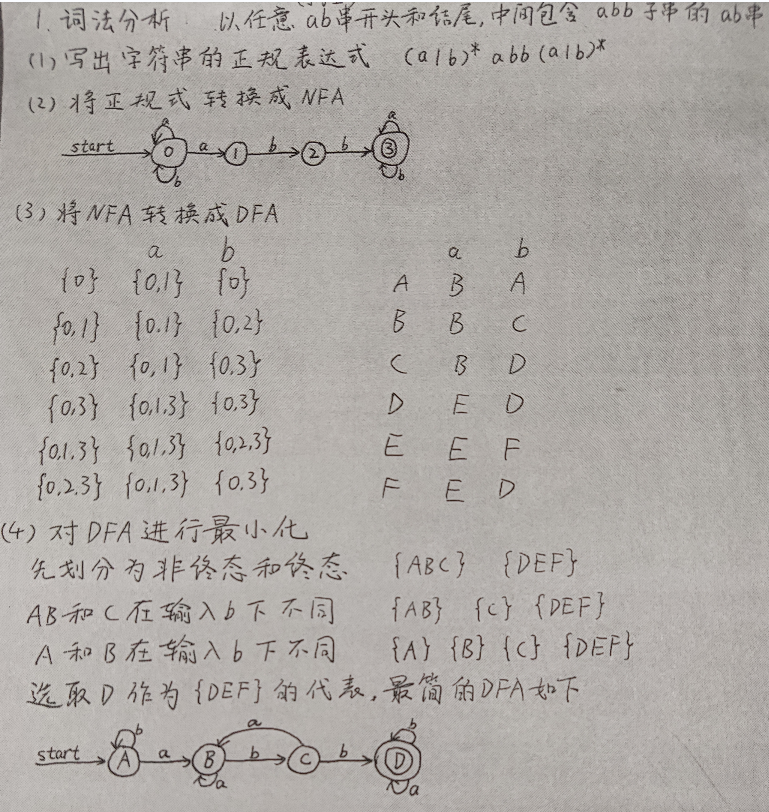 1. 词法分析 以任意ab串开头和结尾,中间包含 abb 子串的ab串
(1) 写出字符串的正规表达式 (a|b)* abb (a|b)*
(2) 将正规式转换成NFA
start 0 a 1 b 2 b 3
a b a b
(3) 将NFA转换成DFA
a b a b
{0} {0,1} {0} A B A
{0,1} {0.1} {0,2} B B C
{0,2} {0,1} {0,3} C B D
{0,3} {0,1,3} {0,3} D E D
{0,1.3} {0,1,3} {0,2,3} E E F
{0,2.3} {0,1,3} {0.3} F E D
(4) 对DFA进行最小化
先划分为非终态和终态 {ABC} {DEF}
AB和C在输入b下不同 {AB} {C} {DEF}
A和B在输入b下不同 {A} {B} {C} {DEF}
选取D作为{DEF}的代表,最简的DFA如下
start A a B b C b D
b a a b a